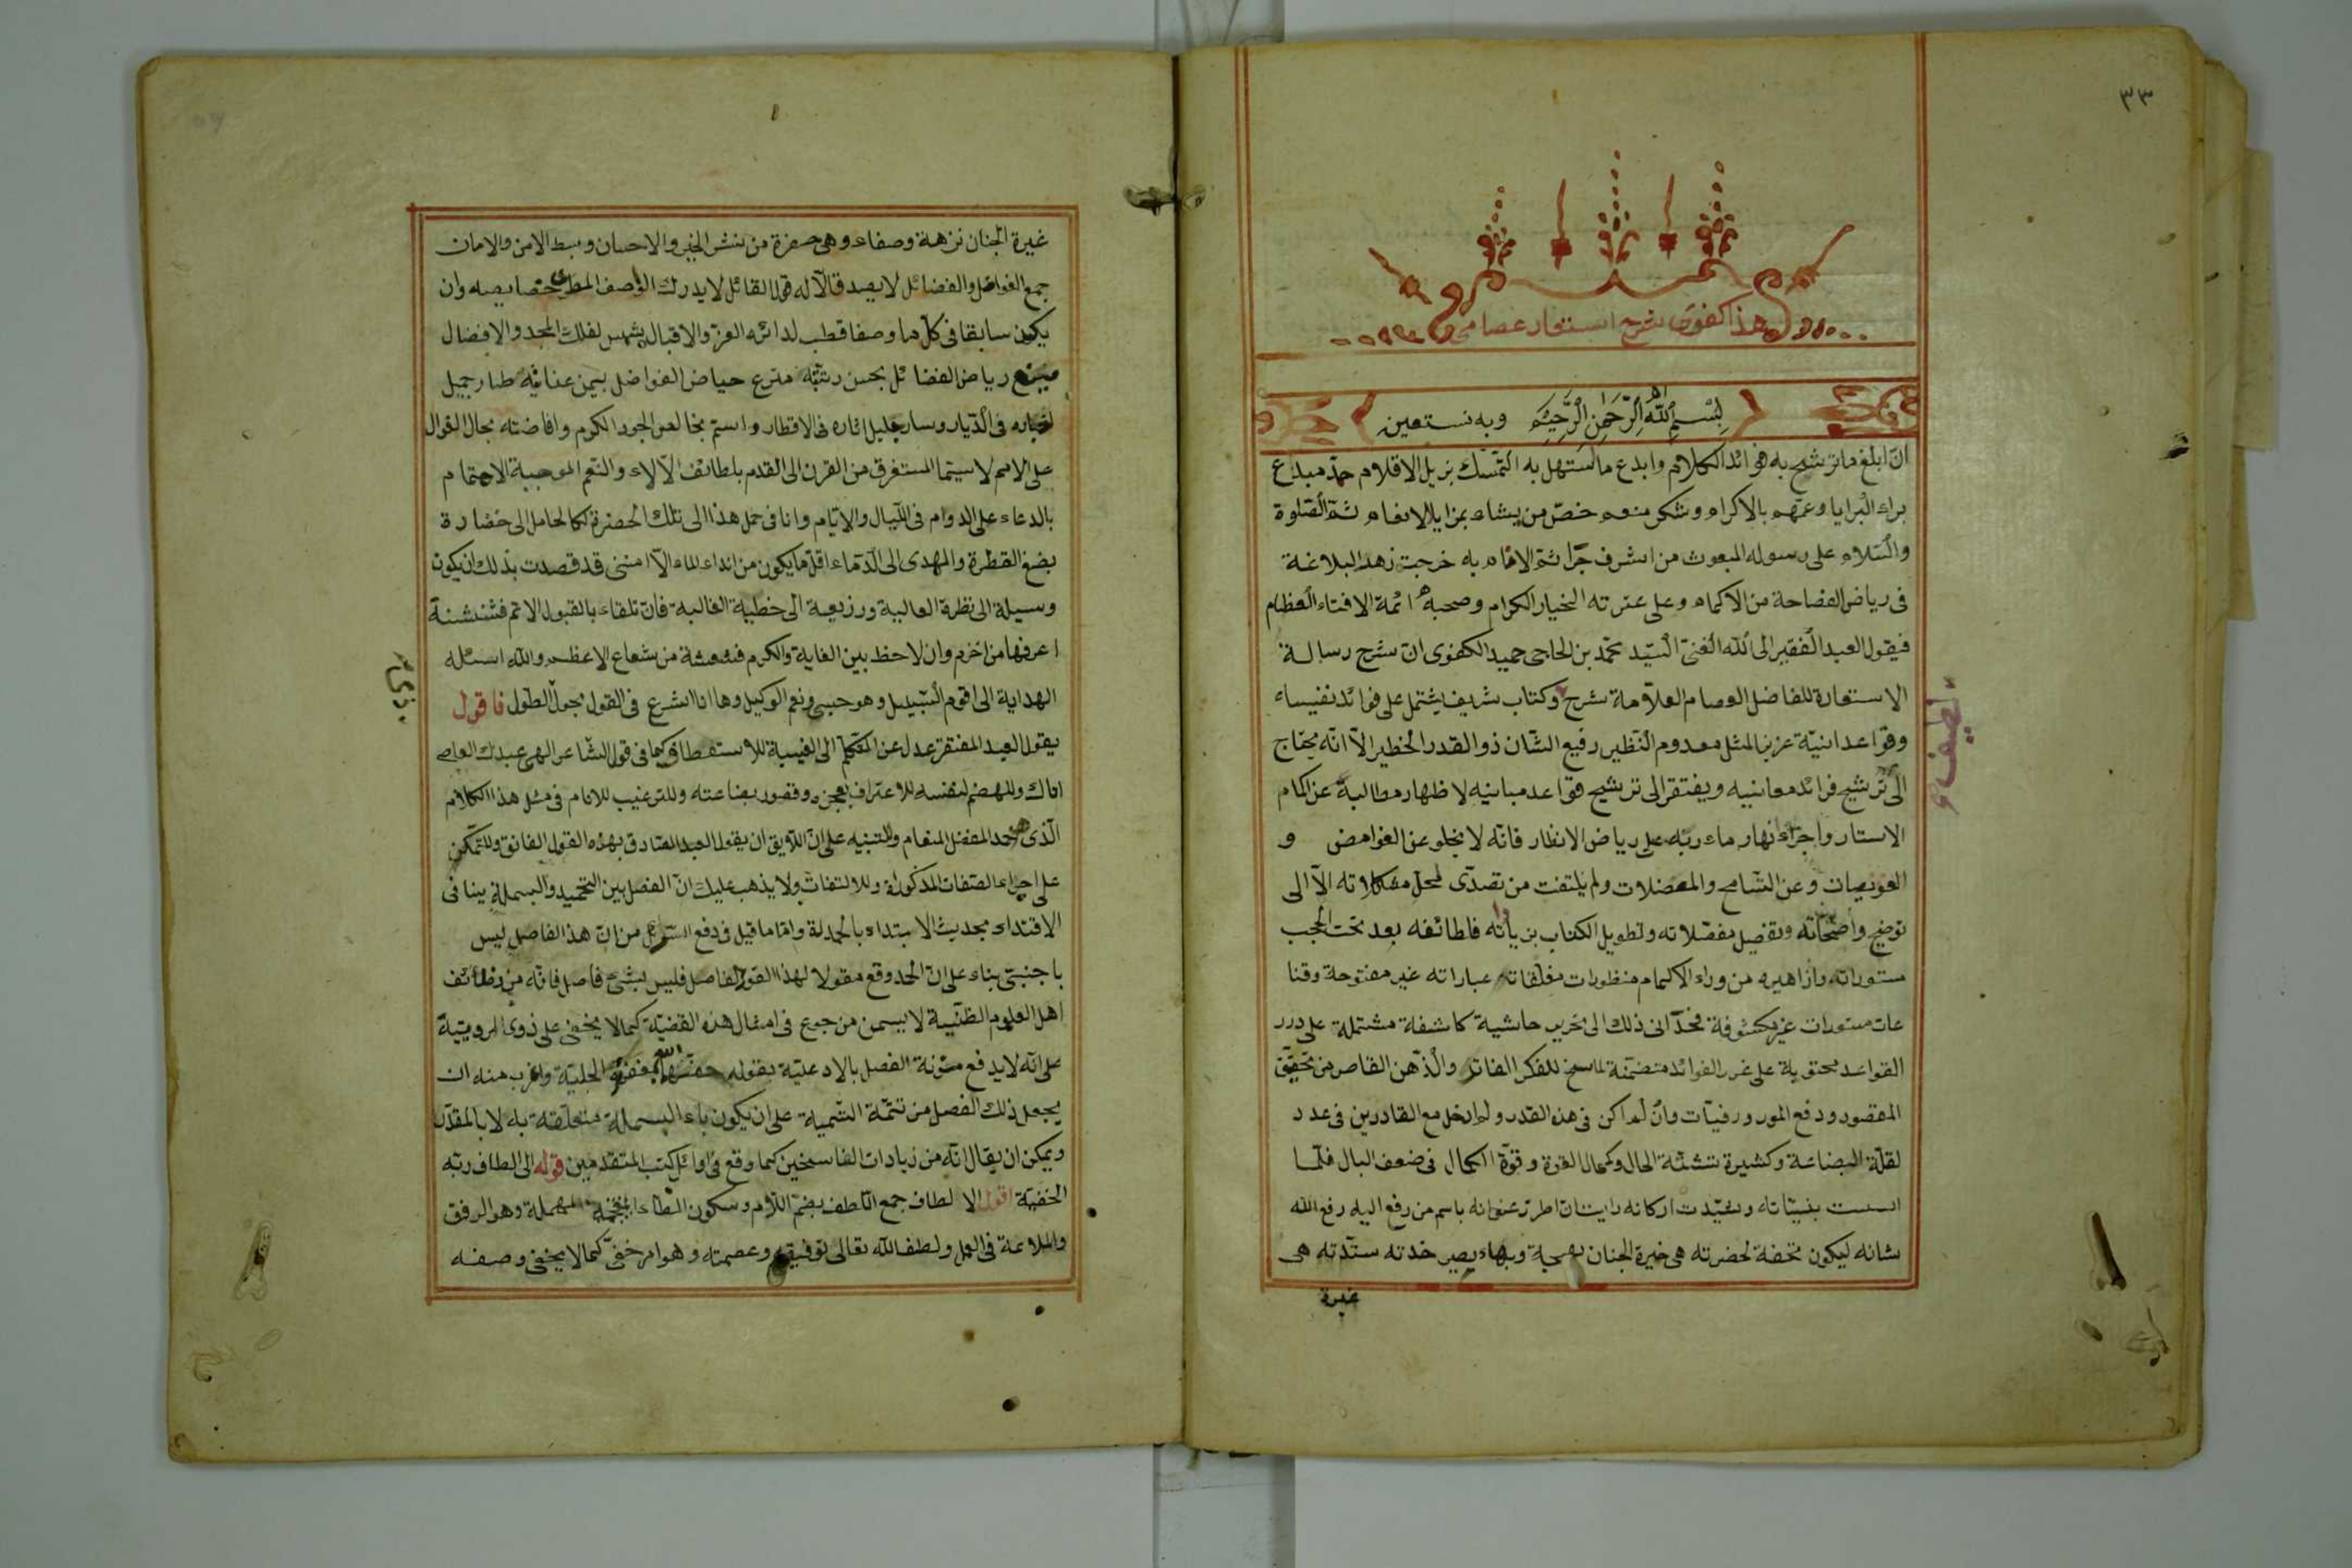 ٣٣
هذا كفوى شرح استعاره عصام
بسم الله الرحمن الرحيم وبه نستعين
ان ابلغ ما ترشح به فوائد الكلام وابدع ما استهل به حمد مبدع
براء البرايا وعمّهم بالاكرام وشكر منعم خصّ من يشاء بمزايا الانعام ثمّ الصّلوة
والسّلام على رسوله المبعوث من اشرف جراثم الانام به خرجت زهر البلاغة
فى رياض الفصاحة من الاكمام وعلى عترته الخيار الكرام وصحبه ائمة الافتاء العظام
فيقول العبد الفقير الى الله الغنىّ السّيد محمّد بن الحاجى حميد الكفوى انّ شرح رسالة
الاستعارة للفاضل العصام العلاّمة شرح وكتاب شريف يشتمل على فوائد نفيساء
وقواعد انيّة عزيز المثل معدوم النّظير رفيع الشّان ذو القدر الخطير الاّ انّه يحتاج
الى ترشيح فرائد معانيه ويفتقر الى ترشيح قواعد مبانيه لاظهار مطالبة عن اكمام
الاستار واجراء انهار ماء ربه على رياض الانظار فانّه لا يخلو عن الغوامض و
العويصات وعن التّسامح والمعضلات ولم يلتفت من تصدّى لحلّ مشكلاته الاّ الى
توضيح واضحاته وتفصيل مفصّلاته وتطويل الكتاب بزياداته فلطائفه بعد تحت الحجب
مستورات وازاهيره من وراء الاكمام منظورات مغلقاته عباراته غير مفتوحة وقنا
عات مستورات غير مكشوفة فحدّانى ذلك الى تحرير حاشية كاشفة مشتملة على درر
القواعد محتوية على غرر الفوائد متضمّنة لما سنح للفكر الفاتر والذّهن القاصر من تحقيق
المقصود ودفع المورد وفيات وان لم اكن فى هذه القدر ولم ادخل مع القادرين فى عدد
لقلّة البضاعة وكثيرة تشتّة الحال وكمال الفترة وقوّة الكمال فى ضعف البال فلمّا
اسست بنيّاته وشيّدت اركانه رايت ان اطرّز عنوانه باسم من رفع اليه رفع الله
شانه ليكون تحفة لحضرته هى خيرة الجنان بهجة وبهاء يصير خدته ستدّته هى
غيرة
لطيف
غيرة الجنان نزهة وصفاء وهى حضرة من ينشر الخير والاحسان وبسط الامن والامان
جمع الفواضل والفضائل لا يصدق الاّ له قول القائل لا يدرك الواصف المطرى خصايصه وان
يكون سابقا فى كلّ ما وصفا قطب لدائره العزّ والاقبال شمس لفلك المجد والافضال
رياض الفضائل بحسن ربّيّه مترع حياض الفواضل بيمن عنايته طار جميل
اخباره فى الدّيار وسار جليل اثاره فى الاقطار واستم بخالص الجود الكرم وافاضته بحال النوال
على الامم لا سيّما المستغرق من القرن الى القدم بلطائف الآلاء والنّعم الموجبة الاهتمام
بالدعاء على الدوام فى اللّيال والايّام وانا فى حمل هذا الى تلك الحضرة كالحامل الى خضارة
بضع القطرة والمهدى الى الدّماء اقلّ ما يكون من انداء الماء الاّ انّنى قد قصدت بذلك ان يكون
وسيلة الى نظرة العالية وذريعة الى خطبة الغالية فان تلقاء بالقبول الاتم فشنشنة
اعرفها من اخزم وان لاحظ بعين العناية والكرم فعمشة من شعاع الاعظم والله اسئله
الهداية الى اقوم السّبيل وهو حسبى ونعم الوكيل وها انا اشرع فى القول بحول الطول فاقول
يقول العبد المفتقر عدل عن المتكلّم الى الغيبة للاستعطاف كما فى قول الشّاعر الهى عبدك العاصى
اتاك وللهضم لنفسه للاعتراف بعجزه وقصور بضاعته وللترغيب للانام فى مثل هذا الكلام
الّذى حمد المفضل المنعام وللتنبيه على انّ اللاّيق ان يقول العبد الصّادق بهذه القول الفائق وللتّمكّن
على اجراء الصّفات المذكورة وللالتفات ولا يذهب عليك انّ الفصل بين التّحميد والبسملة ينافى
الاقتداء بحديث الابتداء بالحمدلة وامّا ما قيل فى دفع السّؤال من انّ هذا الفاصل ليس
باجنبىّ بناء على انّ الحمد وقع مقولا لهذا القول الفاصل فليس بشئ فاصل فانّه من وظائف
اهل العلوم الظنّيّة لا يسمن من جوع فى امثال هذه القضيّة كما لا يخفى على ذوى الرويّة
على انّه لا يدفع مؤنة الفصل بالادعيّة بقوله حفّه الله بمغفرته الجليّة واغرب منه ان
يجعل ذلك الفصل من تتمّة التّسمية على ان يكون باء البسملة متعلّقة به لا بالمقدّر
ويمكن ان يقال انّه من زيادات الناسخين كما وقع فى اوائل كتب المتقدّمين قوله الى الطاف ربّه
الخفيّة اقول الالطاف جمع اللّطف بضمّ اللاّم وسكون الطّاء المهملة وهو الرفق
والملائمة فى العمل ولطف الله تعالى توفيقه وعصمته وهو امر خفىّ كما لا يخفى وصفه